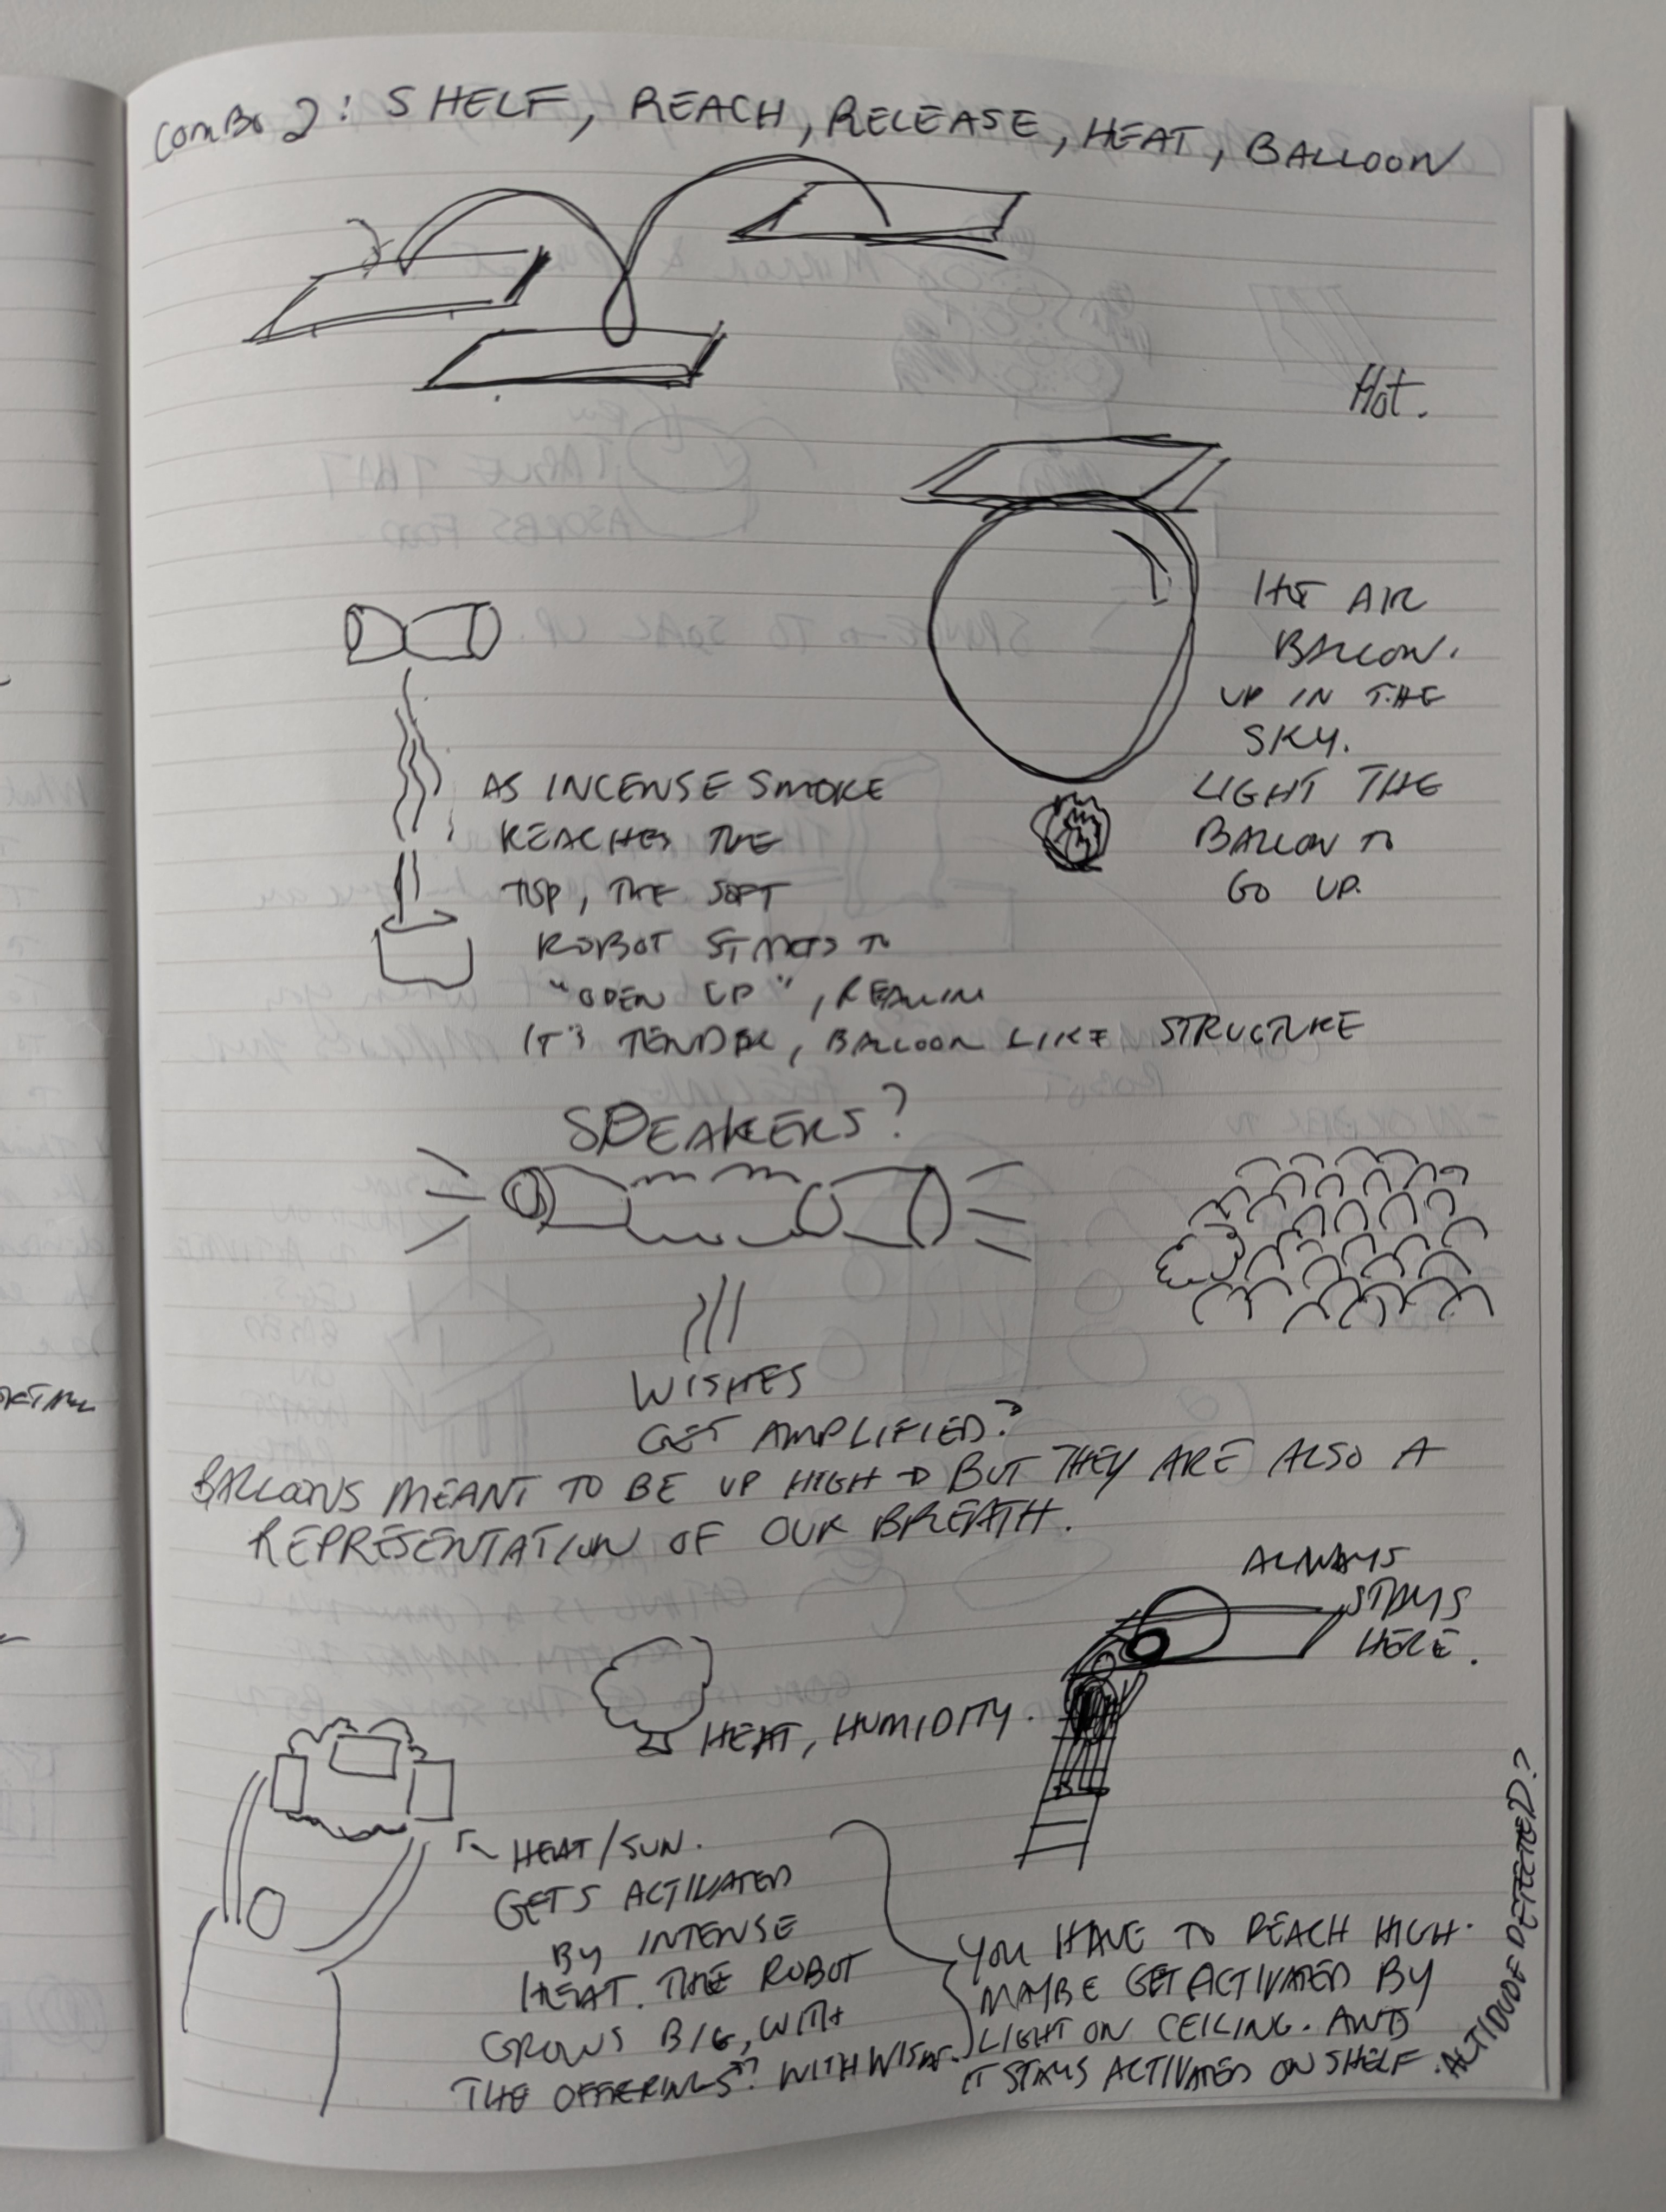 COMBO 2: SHELF, REACH, RELEASE, HEAT, BALLOON
Hot.
HOT AIR
BALLON.
UP IN THE
SKY.
LIGHT THE
BALLON TO
GO UP.
AS INCENSE SMOKE
REACHES THE
TOP, THE SOFT
ROBOT STARTS TO
"OPEN UP",
IT'S TENDER, BALLOON LIKE STRUCTURE
SPEAKERS?
WISHES
GET AMPLIFIED?
BALLOONS MEANT TO BE UP HIGH → BUT THEY ARE ALSO A
REPRESENTATION OF OUR BREATH.
ALWAYS
STAYS
HERE.
HEAT, HUMIDITY.
HEAT/SUN.
GETS ACTIVATED
BY INTENSE
HEAT. THE ROBOT
GROWS BIG, WITH
THE OFFERINGS? WITH WISH.
YOU HAVE TO REACH HIGH.
MAYBE GET ACTIVATED BY
LIGHT ON CEILING. AND
IT STAYS ACTIVATED ON SHELF.
ALTIDUDE DETECTED?